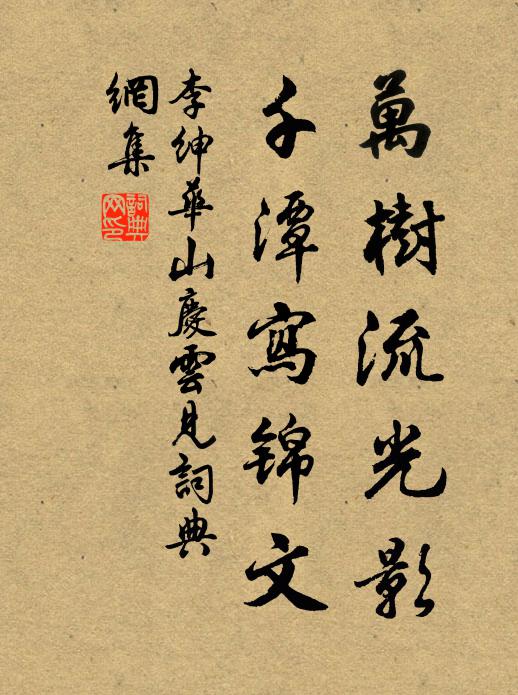 萬樹流光影
千潭寫錦文
李紳華山慶雲見詞典
網集
詞典网印